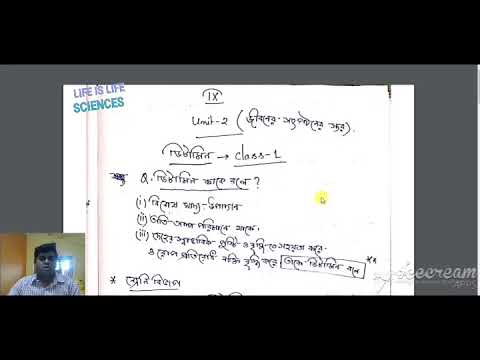 LIFE IS LIFE
SCIENCES
IX
Unit-2 (জীবনের সংগঠনের স্তর).
ভিটামিন → class-1
Q. ভিটামিন কাকে বলে ?
(i) বিশেষ খাদ্য-উপাদান
(ii) অতি-অল্প পরিমানে থাকে।
(iii) দেহের স্বাভাবিক পুষ্টি ও বৃদ্ধি তে সহায়তা করে
ও রোগ প্রতিরোধ শক্তি বৃদ্ধি করে তাকে ভিটামিন বলে
* শ্রেনি বিভাগ
icecream
APPS